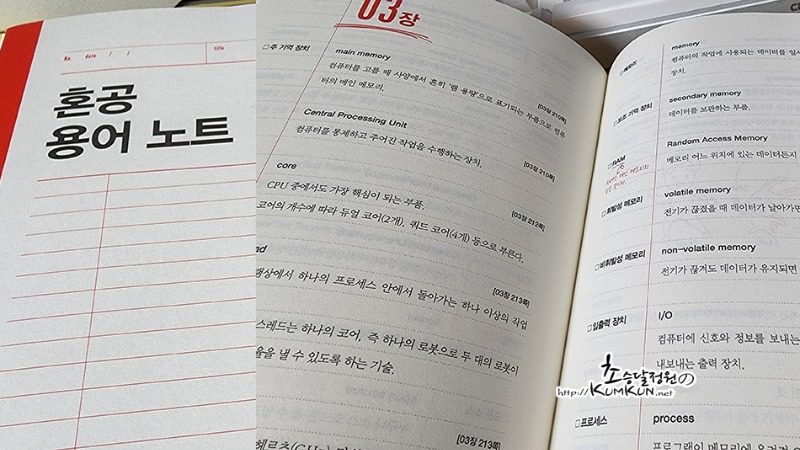 No. date / / title
혼공
용어 노트
03장
□주 기억 장치
main memory
컴퓨터를 고를 때 사양에서 흔히 '램 용량'으로 표기되는 부품으로 컴퓨
터의 메인 메모리.
[03장 210쪽]
Central Processing Unit
컴퓨터를 통제하고 주어진 작업을 수행하는 장치.
[03장 210쪽]
core
CPU 중에서도 가장 핵심이 되는 부품.
[03장 212쪽]
코어의 개수에 따라 듀얼 코어(2개), 쿼드 코어(4개) 등으로 부른다.
ad
행상에서 하나의 프로세스 안에서 돌아가는 하나 이상의 작업
[03장 213쪽]
스레드는 하나의 코어, 즉 하나의 로봇으로 두 대의 로봇이
율을 낼 수 있도록 하는 기술.
[03장 213쪽]
헤르츠
memory
컴퓨터의 작업에 사용되는 데이터를 일시
장치.
□보조 기억 장치
secondary memory
데이터를 보관하는 부품.
□RAM
Random Access Memory
메모리 어느 위치에 있는 데이터든지
□휘발성 메모리
volatile memory
전기가 끊겼을 때 데이터가 날아가면
□비휘발성 메모리
non-volatile memory
전기가 끊겨도 데이터가 유지되면
□입출력 장치
I/O
컴퓨터에 신호와 정보를 보내는
내보내는 출력 장치.
□프로세스
process
프로그램이 메모리에
초승달정원の
http://KUMKUN.net